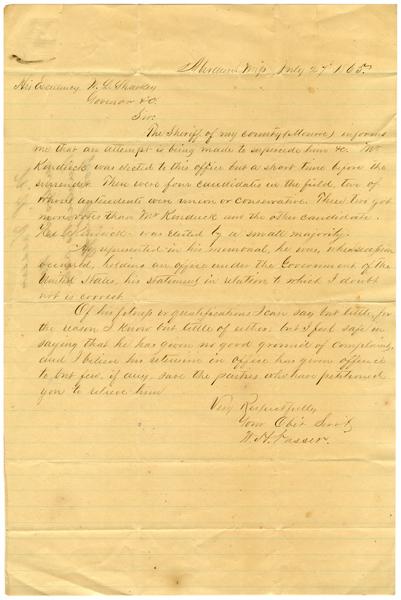 Aberdeen Miss July 27th 1865
His Excellency W. L. Sharkey
Governor &c.
Sir:
The Sheriff of my county (Monroe) informs
me that an attempt is being made to supercede him &c. Mr
Kendrick was elected to this office but a short time before the
surrender. There were four candidates in the field, two of
whose antecedents were union or Conservative. These two got
more votes than Mr Kendrick and the other candidate.
was elected by a small majority.
As represented in his memorial, he was, when secession
occurred, holding an office under the Government of the
United States, his statement in relation to which I doubt
not is correct.
Of his fitness or qualifications I can say but little, for
the reason I know but little of either, but I feel safe in
saying that he has given no good ground of complaint,
and I believe his retension in office has given offence
to but few, if any, save the parties who have petitioned
you to relieve him
Very Respectfully
Your Obt Servt
W. H.